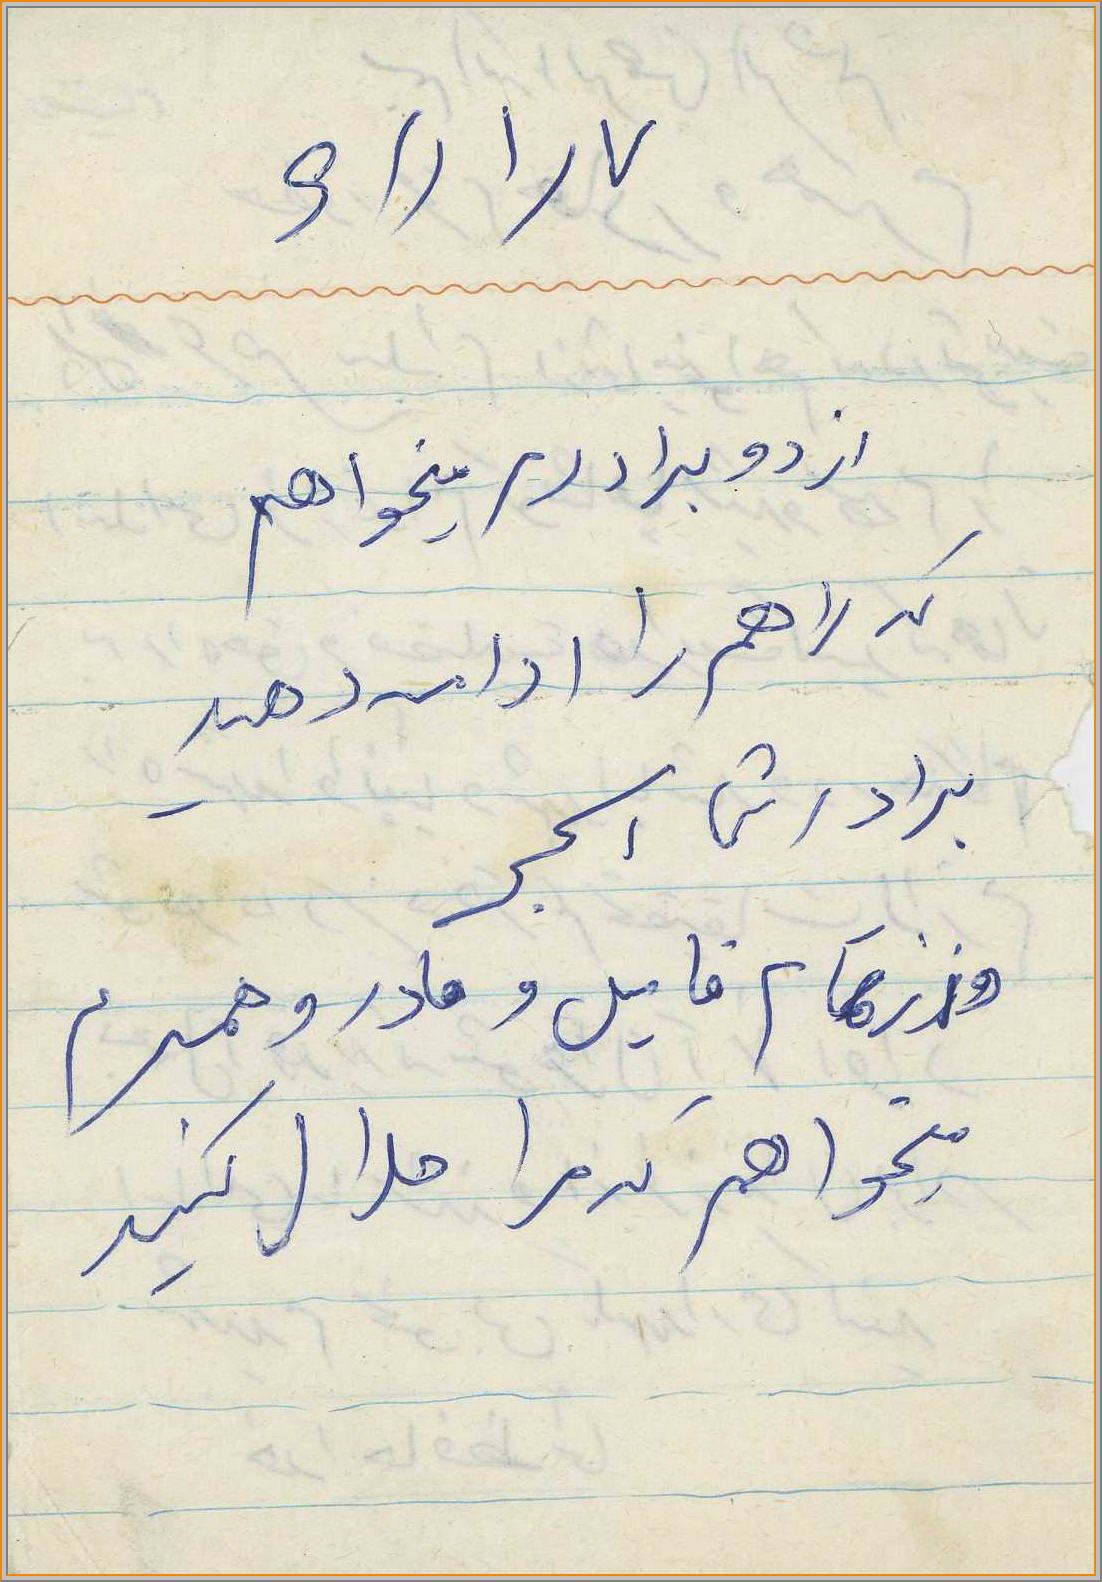 از دو برادرم میخواهم
که راهم را ادامه دهید
برادر شما
و از تمام فامیل و مادر و همسرم
میخواهم که مرا حلال کنید